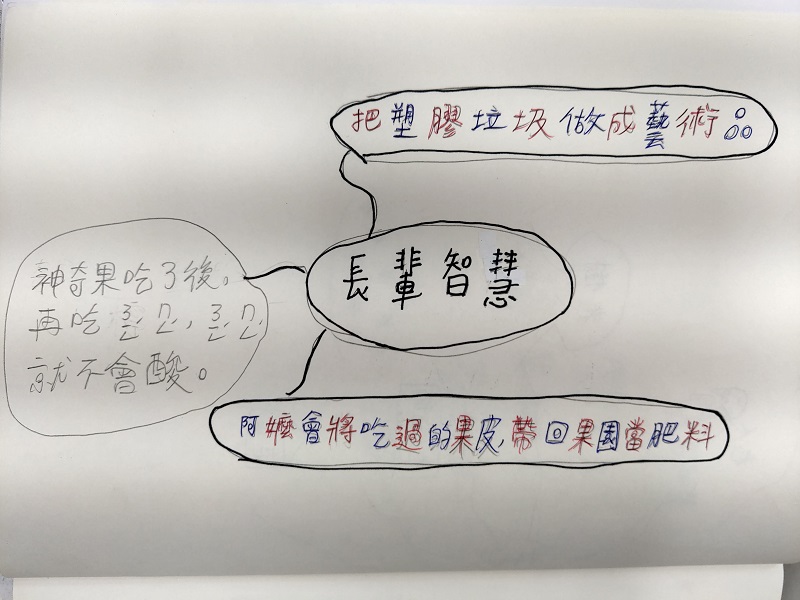 把塑膠垃圾做成藝術品
長輩智慧
神奇果吃了後。
再吃ㄋㄧㄥˊㄇㄥˊ,ㄋㄧㄥˊㄇㄥˊ
就不會酸。
阿嬤會將吃過的果皮,帶回果園當肥料